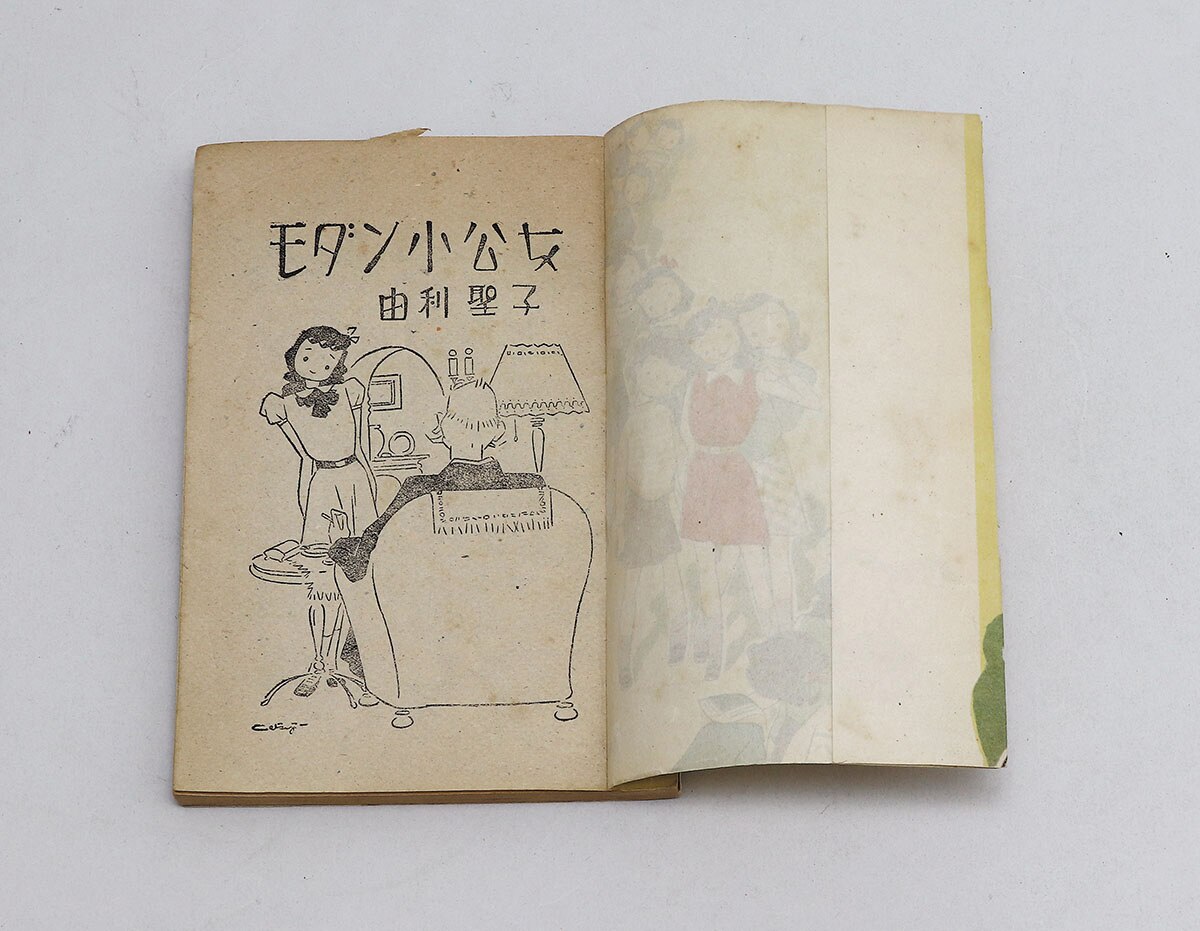 モダン小公女
由利聖子